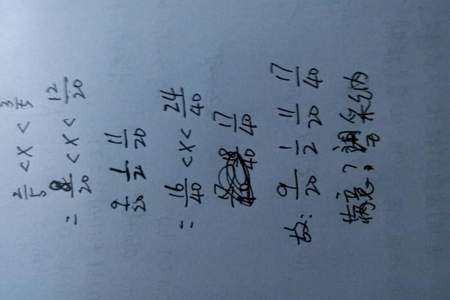 2/5 < X < 3/5
= 8/20 < X < 12/20
9/20 1/2 11/20
= 16/40 < X < 24/40
17/40
故: 9/20 1/2 11/20 17/40
满意,请采纳